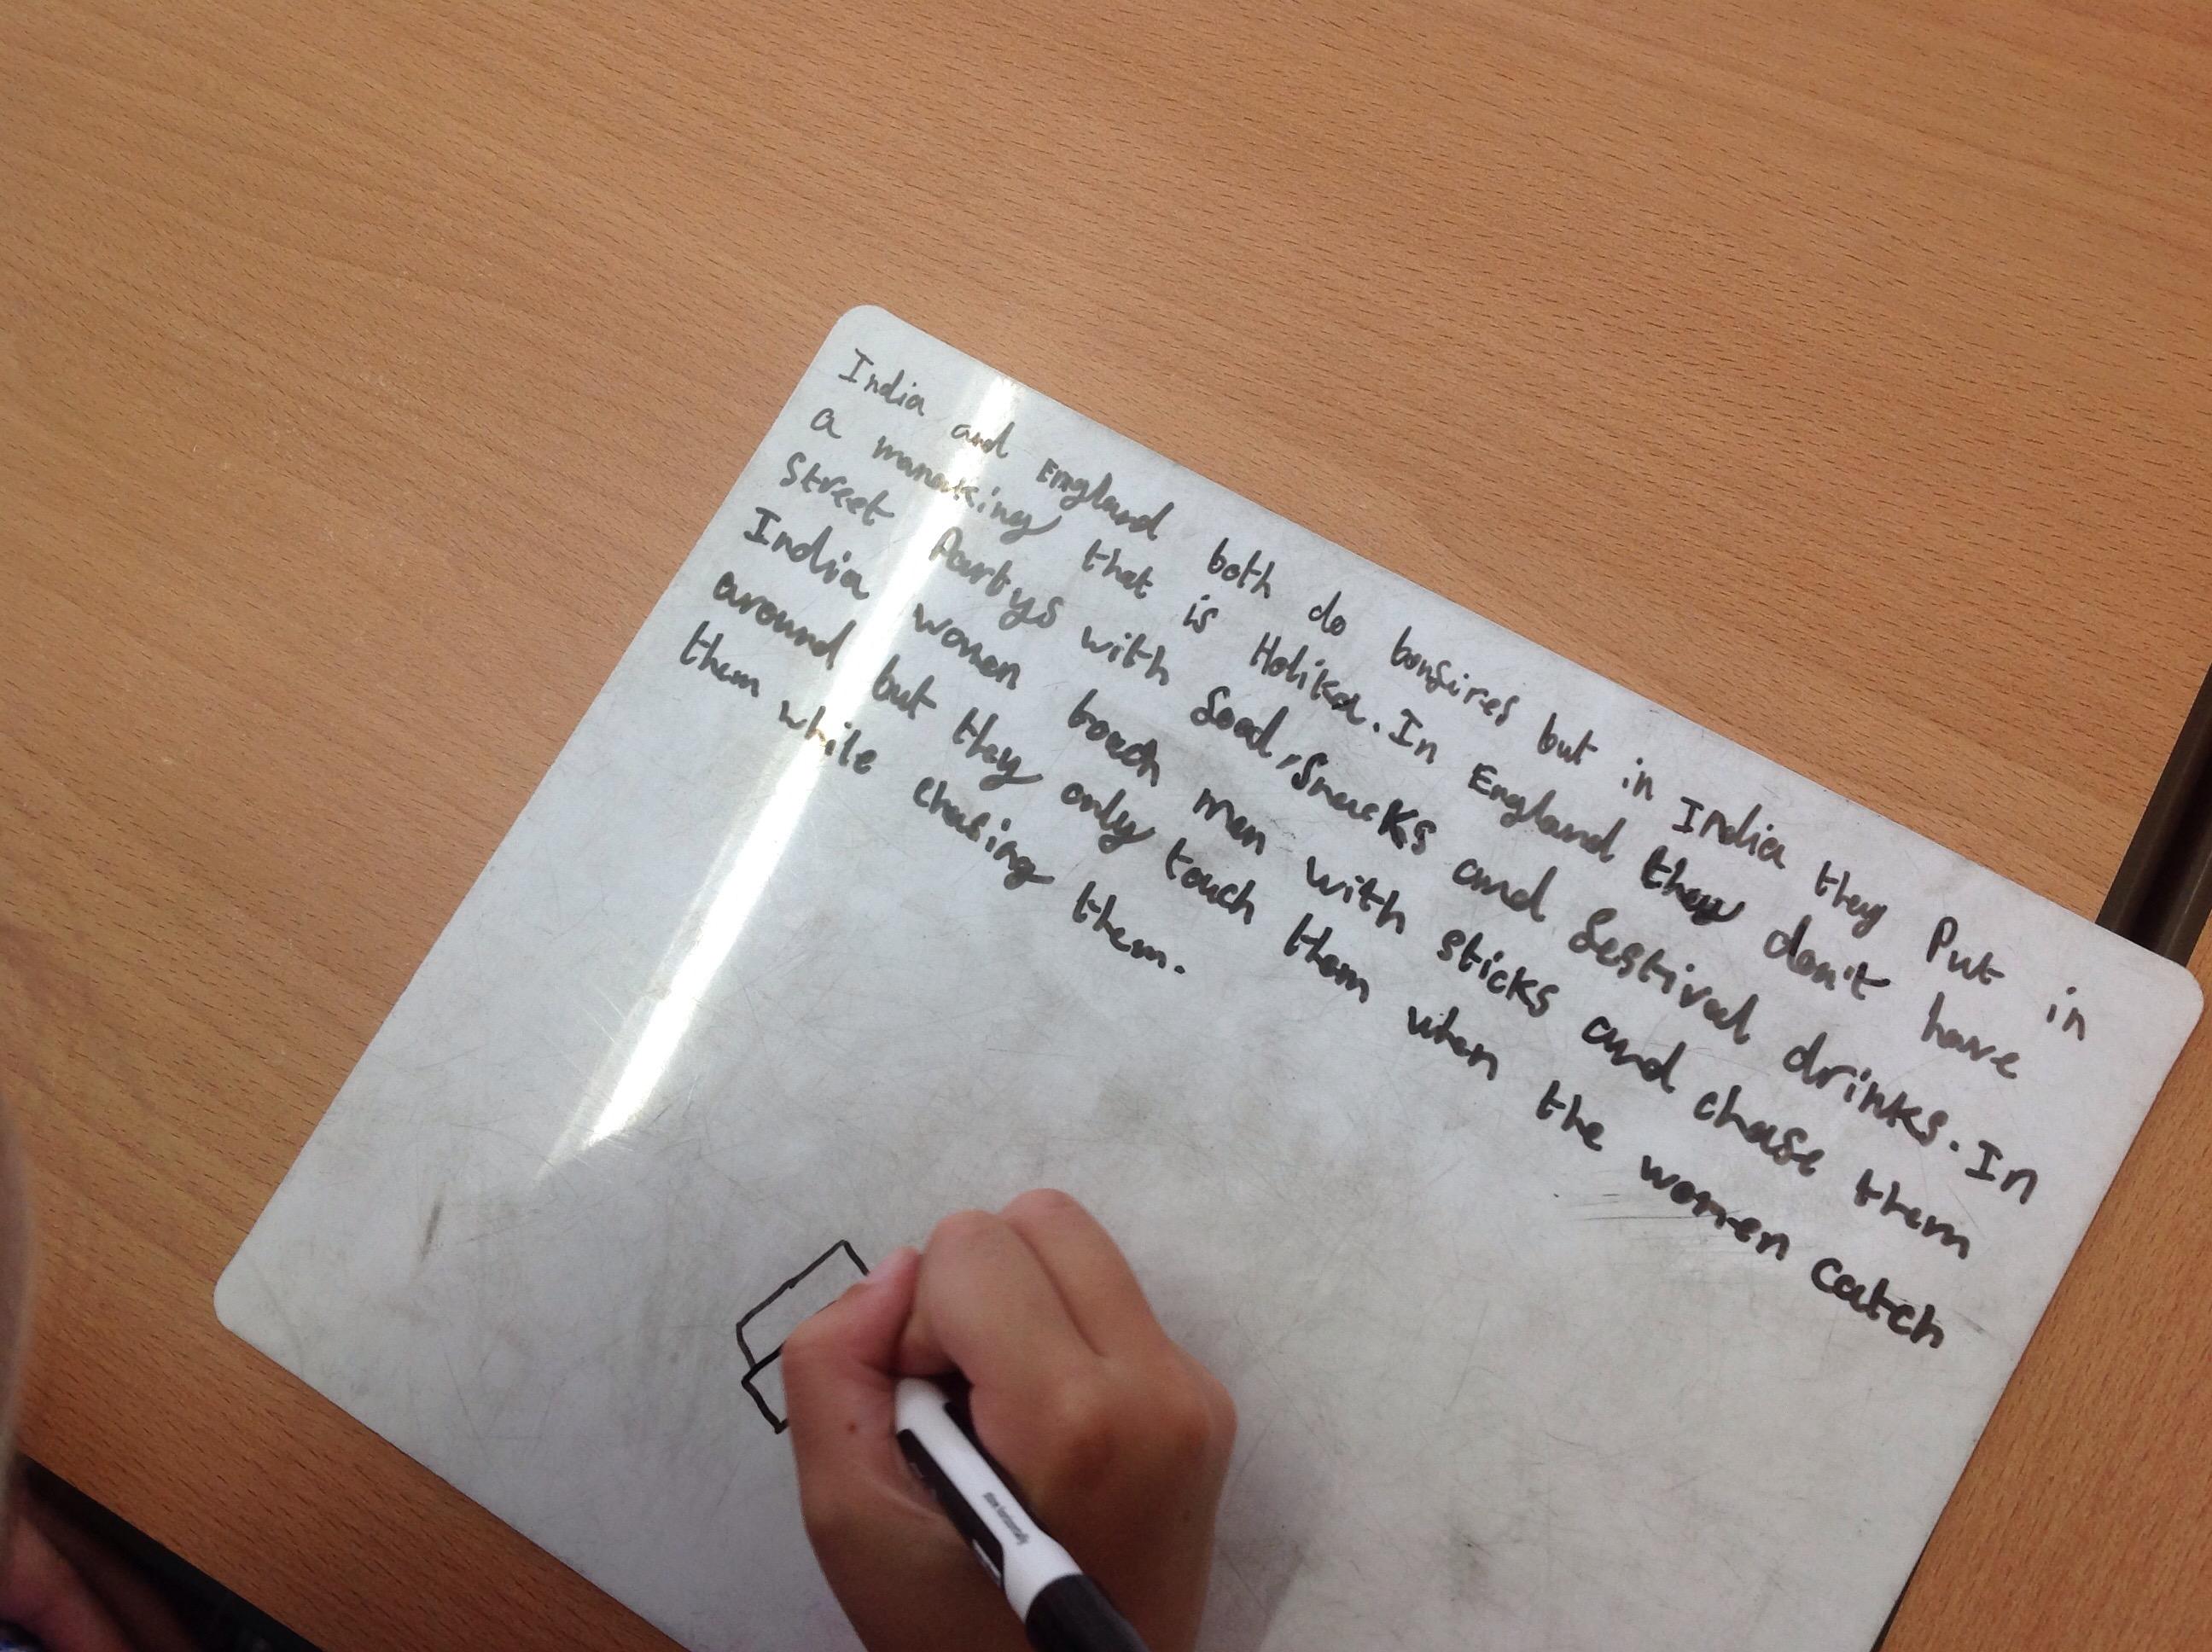 India and England both do bonfires but in India they Put in
a manaking that is Holika. In England they don't have
Street Partys with food, Snacks and festival drinks. In
India women beach men with sticks and chase them
around but they only touch them when the women catch
them while chasing them.